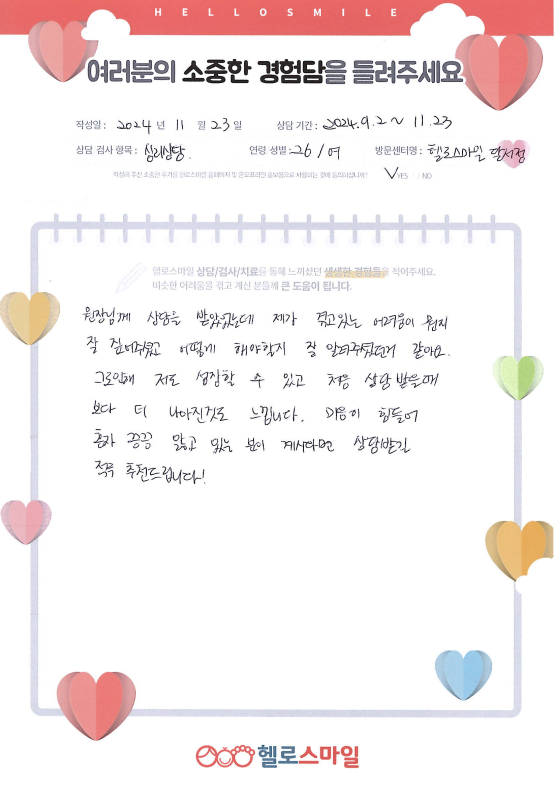 HELLOSMILE
여러분의 소중한 경험담을 들려주세요
작성일 : 2024 년 11 월 23 일 상담 기간 : 2024. 9. 2 ~ 11. 23
상담 검사 항목 : 심리상담. 연령 성별 : 26 / 여 방문센터명 : 헬로스마일 달서점
작성해 주신 소중한 후기를 헬로스마일 홈페이지 및 온오프라인 홍보용으로 사용하는 것에 동의하십니까? ✓YES □NO
헬로스마일 상담/검사/치료를 통해 느끼셨던 생생한 경험들을 적어주세요.
비슷한 어려움을 겪고 계신 분들께 큰 도움이 됩니다.
원장님께 상담을 받았었는데 제가 겪고있는 어려움이 뭔지
잘 짚어주셨고 어떻게 해야할지 잘 알려주셨던거 같아요.
그로인해 저도 성장할 수 있고 처음 상담 받을때
보다 더 나아진것도 느낍니다. 마음이 힘들어
혼자 끙끙 앓고 있는 분이 계시다면 상담받길
적극 추천드립니다!
헬로스마일